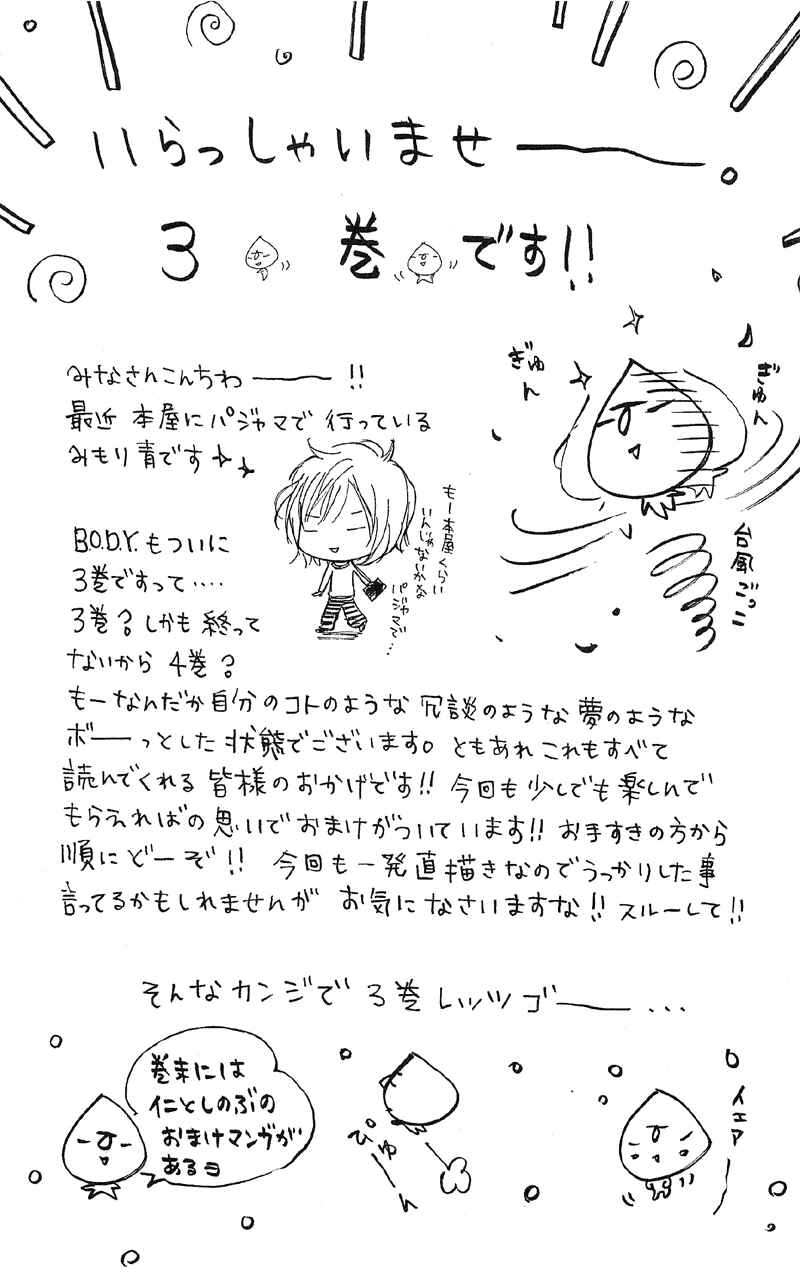 いらっしゃいませ――。
3巻です!!
みなさんこんちわ――!!
最近 本屋にパジャマで 行っている
みもり青です
もー本屋くらい
いんじゃないかな
パジャマで…
ぎゅん
ぎゅん
台風ごっこ
B.O.D.Y.もついに
3巻ですって‥‥
3巻?しかも終って
ないから 4巻?
もーなんだか自分のコトのような 冗談のような夢のような
ボ――っとした状態でございます。ともあれこれもすべて
読んでくれる 皆様のおかげです!! 今回も少しでも楽しんで
もらえればの思いでおまけがついています!! お手すきの方から
順にどーぞ!! 今回も一発直描きなのでうっかりした事
言ってるかもしれませんが お気になさいますな!! スルーして!!
そんなカンジで 3巻レッツゴ――...
巻末には
仁としのぶの
おまけマンガが
あるヨ
ぴゅーん
イエアー